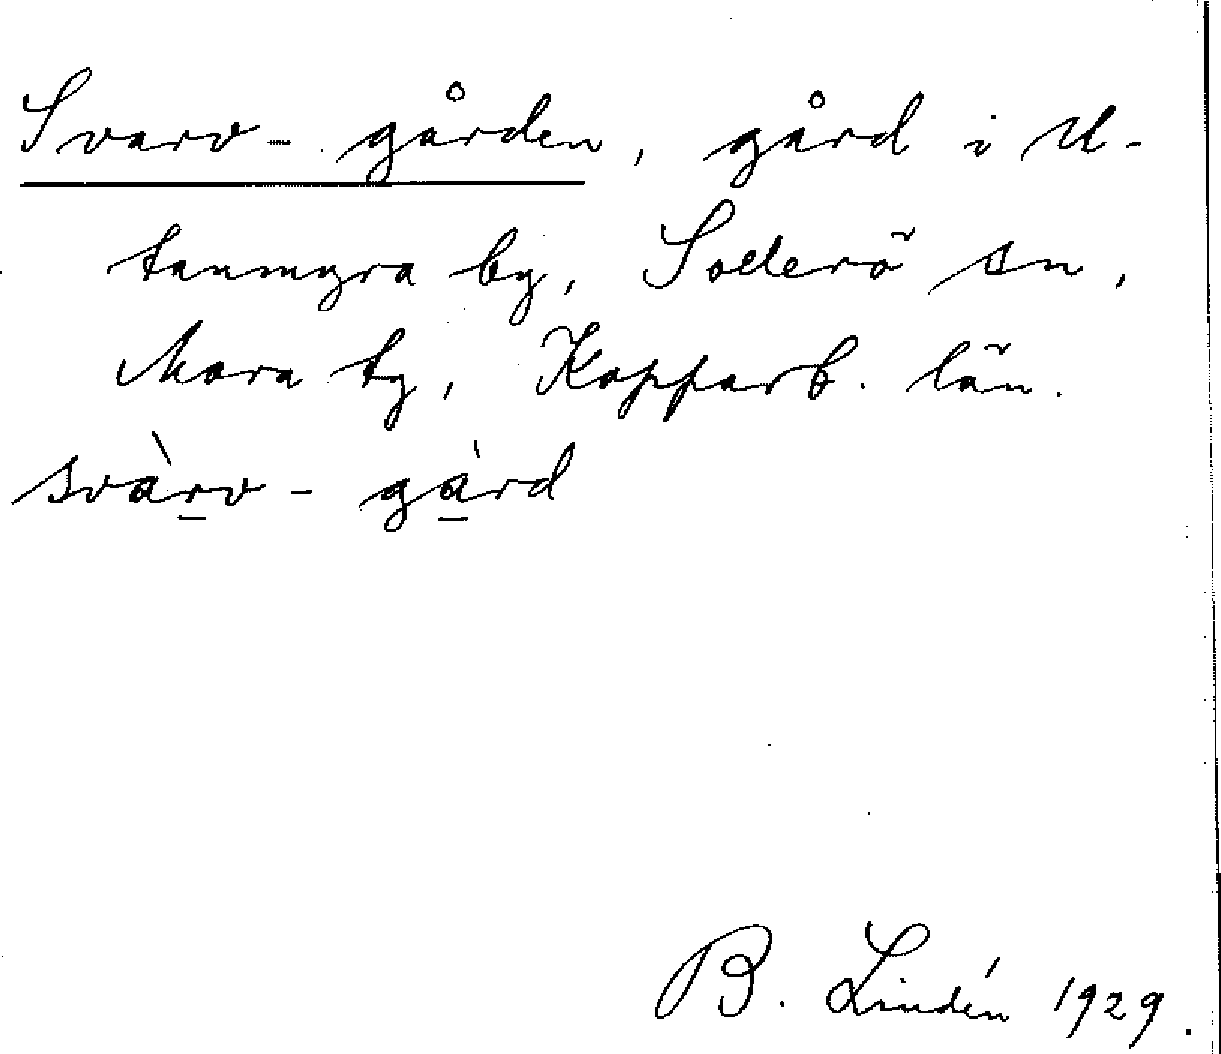 Svarv-gården, gård i U-
tanmyra by, Sollerö sn,
Mora tg, Kopparb. län.
svàrv-gàrd
B. Lindén 1929.